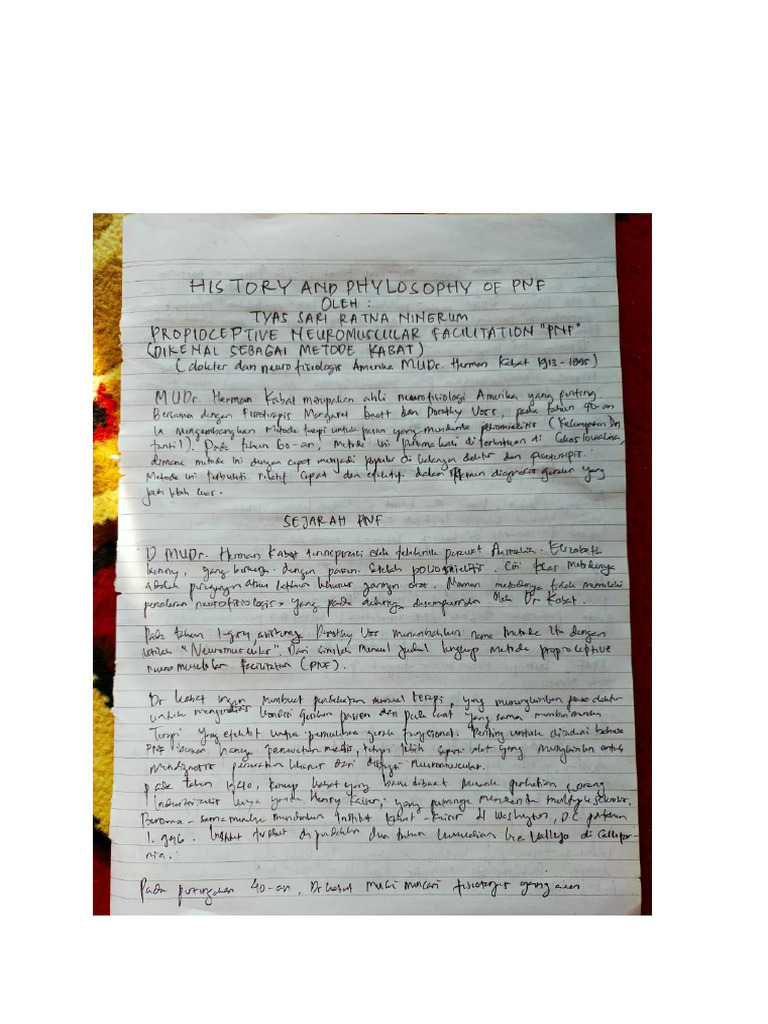 HISTORY AND PHYLOSOPHY OF PNF
OLEH :
TYAS SARI RATNA NINGRUM
PROPIOCEPTIVE NEUROMUSCULAR FACILITATION "PNF"
(DIKENAL SEBAGAI METODE KABAT)
(dokter dan neurofisiologis Amerika MUDr. Herman Kabat 1913-1995)
MUDr. Herman Kabat merupakan ahli neurofisiologi Amerika yang penting.
Bersama dengan Fisioterapis Margaret Knott dan Dorothy Voss, pada tahun 40-an
Ia mengembangkan metode terapi untuk pasien yang menderita
Pada tahun 60-an, metode ini pertama kali di terbitkan di
dimana metode ini dengan cepat menjadi populer di kalangan dokter dan fisioterapis.
Metode ini terbukti relatif cepat dan efektif dalam diagnosis gerakan yang
jauh lebih luas.
SEJARAH PNF
MUDr. Herman Kabat terinspirasi oleh perawat Australia. Elizabeth
kenny, yang bekerja dengan pasien. Setelah Ciri khas metodenya
adalah peregangan atau latihan khusus jaringan otot. Namun metodenya tidak memiliki
penalaran neurofisiologis, yang pada akhirnya disempurnakan oleh Dr Kabat.
Pada tahun 1954, Dorothy Voss menambahkan nama metode itu dengan
istilah "Neuromuscular". Dari sinilah muncul judul lengkap metode proprioceptive
neuromuscular facilitation (PNF).
Dr kabat ingin membuat pendekatan manual terapi, yang memungkinkan para dokter
untuk kondisi gerakan pasien dan pada saat yang sama memberikan
Terapi yang efektif untuk pemulihan gerak fungsional. Penting untuk disadari bahwa
PNF bukan hanya perawatan medis, tetapi lebih seperti alat yang memungkinkan untuk
mendiagnosis perawatan khusus dari disfungsi neuromuscular.
pada tahun 1940, konsep kabat yang baru dibuat menarik perhatian seorang
industrialis kaya yaitu Henry Kaiser, yang putranya menderita multiple sclerosis.
Bersama-sama mereka mendirikan Institut kabat-kaiser di Washington, D.C. pada tahun
1.946. Institut tersebut dipindahkan dua tahun kemudian ke Vallejo di Califor-
nia.
Pada pertengahan 40-an, Dr kabat mulai mencari fisioterapis